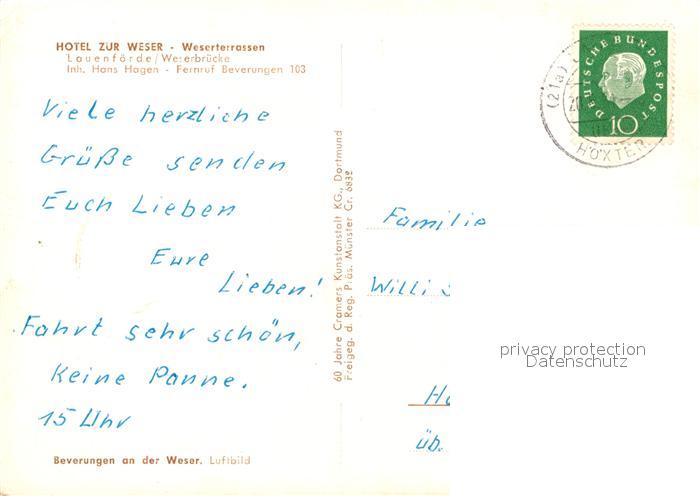 HOTEL ZUR WESER - Weserterrassen
Lauenförde/Weserbrücke
Inh. Hans Hagen - Fernruf Beverungen 103
Viele herzliche
Grüße senden
Euch Lieben
Eure
Lieben!
Fahrt sehr schön,
Keine Panne.
15 Uhr
Beverungen an der Weser. Luftbild
60 Jahre Cramers Kunstanstalt KG., Dortmund
Freigeg. d. Reg. Präs. Münster Cr. 6832
DEUTSCHE BUNDESPOST
10
(21a)
HÖXTER
Familie
Willi
üb.
privacy protection
Datenschutz